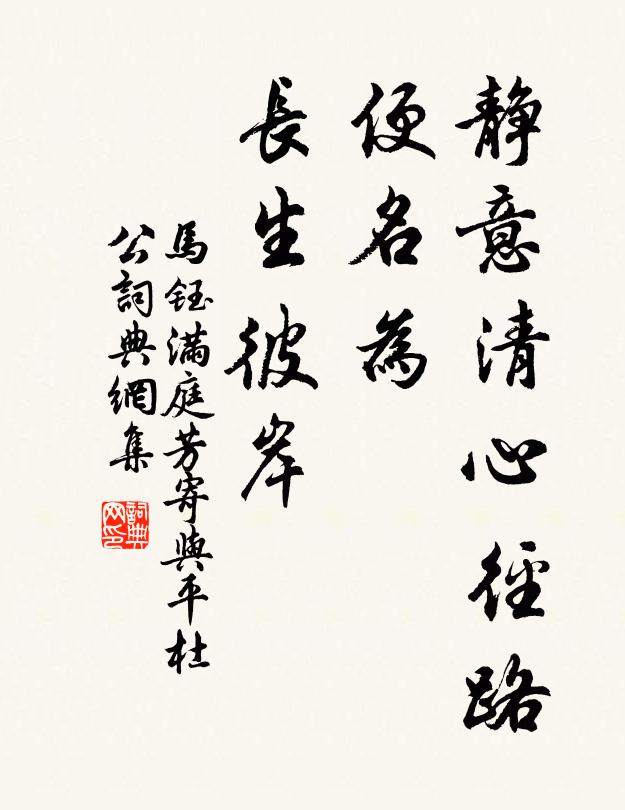 静意清心徑路
便名為
長生彼岸
馬鈺滿庭芳寄與平杜
公詞典網集
詞典网印